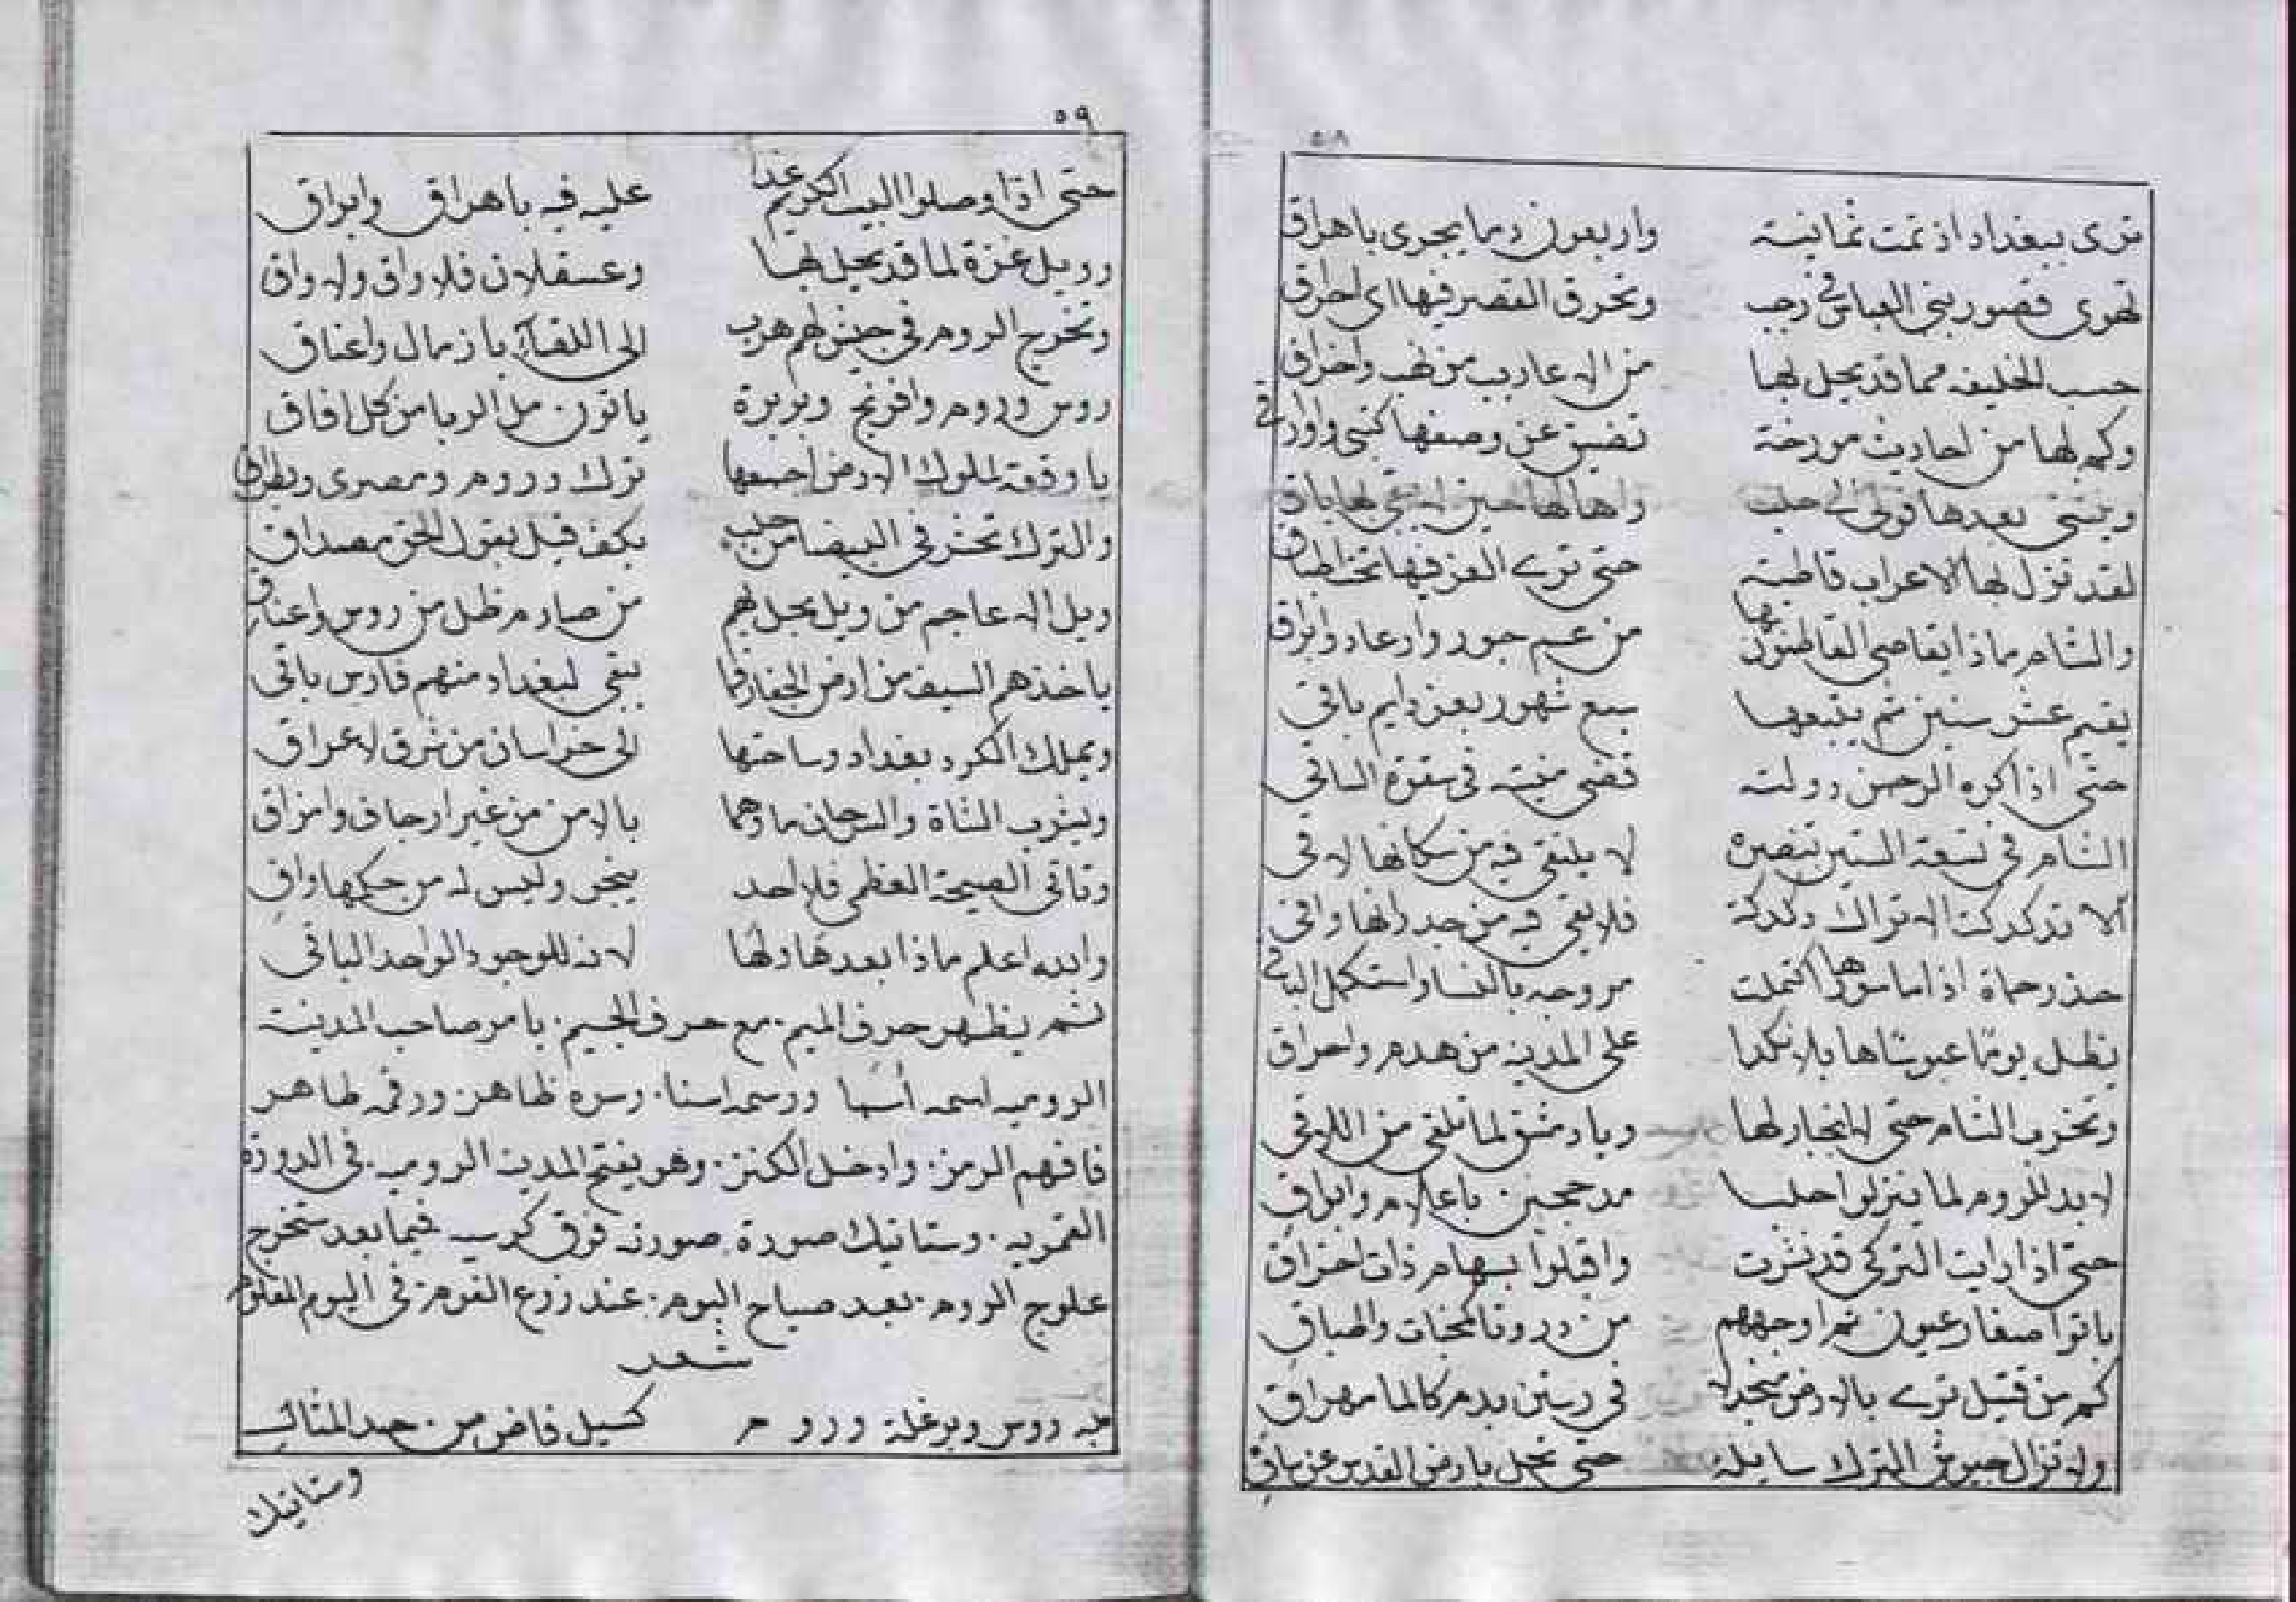 ٥٨
ترى ببغداد اذ تمت ثمانية واربعون دما يجرى باهراق
تهوى قصور بنى العباس فى رجب وتحرق القصر فيها اى احراق
حسب الخليفه مما قد يحل بها من الاعاريب من نهب واخراق
وكم لها من احاديث مورخة تضيق عن وصفها كتبى واوراقى
وينتنى بعدها قولى الى حلب واها لها حين لا يبقى بها باق
لقد تنزل بها الاعراب قاطبة حتى ترى العز فيها تحت اطباق
والشام ماذا يقاصى القاطنون بها من عسر جور وارعاد وابراق
يقيم عشر سنين ثم يتبعها سبع شهور بعز دايم باقى
حتى اذا كره الرحمن دولته قضى منيته فى سقوة الساقى
الشام فى تسعة الستين تبصره لا يلتقى فيه من سكانها لاقى
الا تدكدكت الاتراك دكدكة فلا يبقى فيه من جدرانها واقى
حذر حماة اذا ما سورها اكتملت مروجه بالنسا واستكمل الباقى
يظل يومًا عبوسًا ها بلا نكدا على المدينه من هدم واحراق
وتخرب الشام حتى لا انجبار لها ويا دمشق لما تلقى من اللاقى
لا بد للروم لما ينزلوا حلبا مدججين باعلام وابواق
حتى اذا رايت التركى قد نشرت واقبلوا بسهام ذات احراق
ياتوا صغار عيون نمرا وجههم من دروتا لمخبات والطباق
كم من قتيل ترى بالارض منجدلا فى رستن بدم كالما مهراق
ولا تزال جيوش الترك سايلة حتى تحل بارض القدس عن باق
٥٩
حتى اذا وصلوا البيت الكريم غدا عليه فيه باهراق وابراق
وويل غزة لما قد يحل بها وعسقلان فلا واق ولا واق
وتخرج الروم فى جيش لهم هرب الى اللقاء بازمال واعناق
روس وروم وافرنج وبربرة ياتون مل الربا من كل افاق
يا وقعة لملوك الارض اجمعها ترك وروم ومصرى
والترك تحشر فى البيضا من حلب بكف قيل يقول الحق مصداق
ويل الاعاجم من ويل يحل بهم من صارم ظل من روس واعناق
ياخذهم السيف من ارض الجفار فما يبقى لبغداد منهم فارس باقى
ويملك الكرد بغداد وساحتها الى خراسان من شرق لاعراق
ويشرب الشاة والسرحان ماوهما بالامن من غير ارجاف وامزاق
وتاتى الصيحة العظمى فلا احد ينجو وليس له من حكمها واق
والله اعلم ماذا بعدها ولها لانه للوجود الواحد الباقى
ثم يظهر حرف الميم. مع حرف الجيم. بامر صاحب المدينة
الروميه اسمه أسما ورسمه اسنا. وسره ظاهر. ورقمه طاهر
فافهم الرمز. وادخل الكنز. وهو يفتح المدينه الروميه. فى الدورة
القمريه. وستاتيك صورة صورته فوق كرسيه فيما بعد ستخرج
علوج الروم. بعد صياح البوم. عند زرع الفوم. فى اليوم المعلوم
شعر
روس وبرغلة وروم كسيل فاض من حد المثالث
وستاتيك